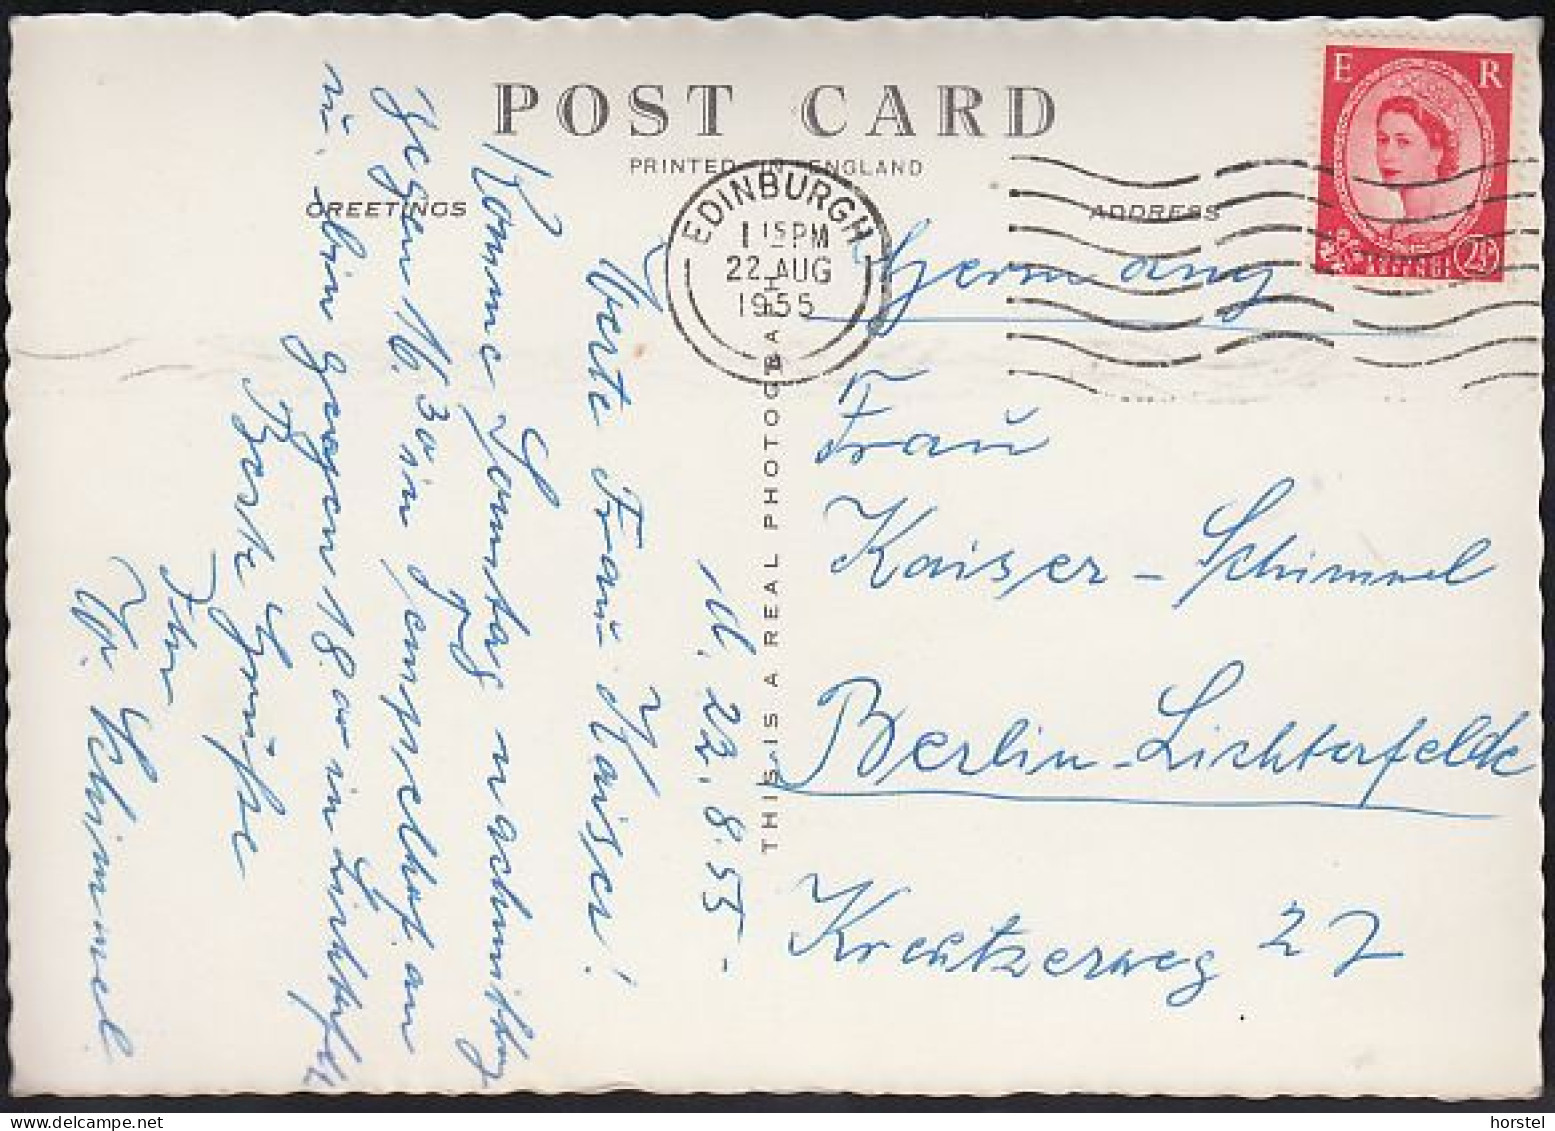 POST CARD
PRINTED IN ENGLAND
GREETINGS
ADDRESS
E R
POSTAGE
2½D
EDINBURGH
1 15 PM
22 AUG
1955
THIS IS A REAL PHOTOGRAPH
22.8.55
Werte Frau Kaiser!
Komme Sonntag nachmittag
gegen 16.30 in Tempelhof an
u. bin gegen 18.00 in Lichterfelde
Beste Grüße
Ihr
W. Schimmel
Germany
Frau
Kaiser-Schimmel
Berlin-Lichterfelde
Kreutzerweg 27
horstel